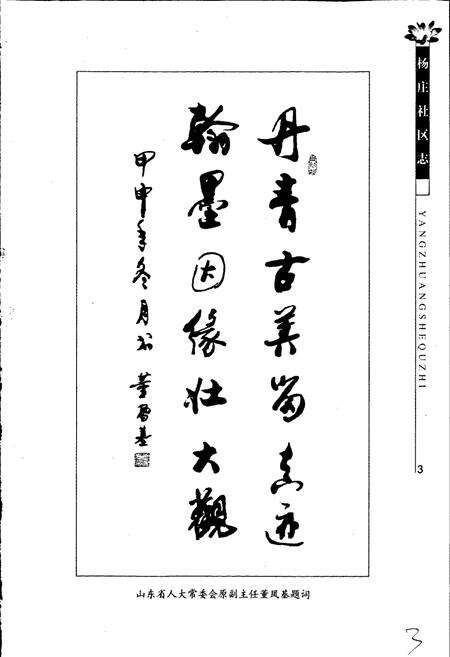 丹青古美留真迹
翰墨因缘壮大觀
甲申年冬月
董凤基
山东省人大常委会原副主任董凤基题词
杨庄社区志
YANGZHUANGSHEQUZHI
3
3